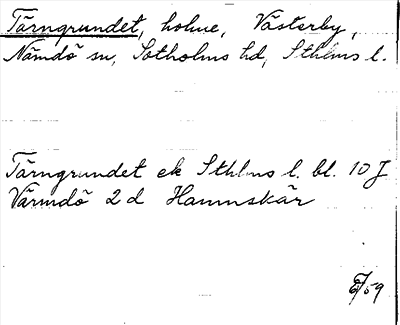 Tärngrundet, holme, Västerby,
Nämdö sn, Sotholms hd, Sthlms l.
Tärngrundet ek Sthlms l. bl. 10 J
Värmdö 2 d Hamnskär